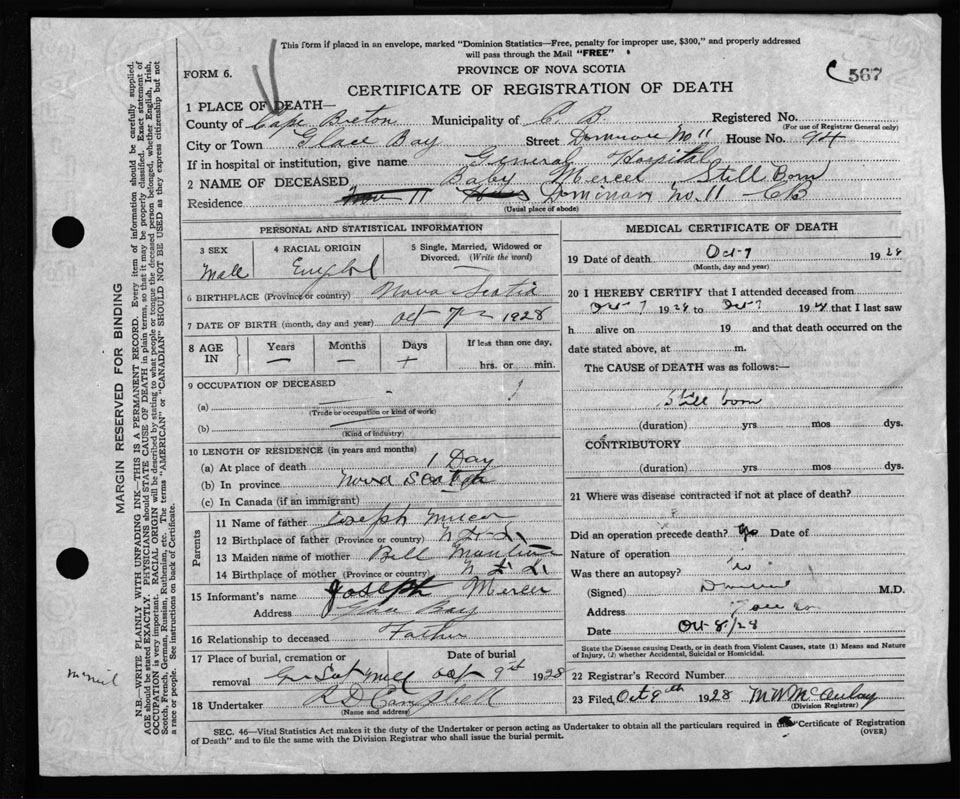 This form if placed in an envelope, marked "Dominion Statistics—Free, penalty for improper use, $300," and properly addressed
will pass through the Mail "FREE"
FORM 6.
PROVINCE OF NOVA SCOTIA
567
CERTIFICATE OF REGISTRATION OF DEATH
1 PLACE OF DEATH—
County of Cape Breton Municipality of C. B. Registered No.
(For use of Registrar General only)
City or Town Glace Bay Street Dominion No 11 House No. 94
If in hospital or institution, give name General Hospital
2 NAME OF DECEASED Baby Mercer Still Born
Residence 11 Dominion No. 11 CB
(Usual place of abode)
PERSONAL AND STATISTICAL INFORMATION
3 SEX Male
4 RACIAL ORIGIN
5 Single, Married, Widowed or Divorced. (Write the word) —
6 BIRTHPLACE (Province or country) Nova Scotia
7 DATE OF BIRTH (month, day and year) Oct 7 1928
8 AGE IN Years — Months — Days + If less than one day, hrs. or min.
9 OCCUPATION OF DECEASED
(a) —
(Trade or occupation or kind of work)
(b) —
(Kind of industry)
10 LENGTH OF RESIDENCE (in years and months)
(a) At place of death 1 Day
(b) In province Nova Scotia
(c) In Canada (if an immigrant)
Parents
11 Name of father Joseph Mercer
12 Birthplace of father (Province or country)
13 Maiden name of mother Bell
14 Birthplace of mother (Province or country)
15 Informant's name Joseph Mercer
Address Glace Bay
16 Relationship to deceased Father
17 Place of burial, cremation or removal
Date of burial Oct 9 1928
18 Undertaker Campbell
(Name and address)
MEDICAL CERTIFICATE OF DEATH
19 Date of death Oct 7 1928
(Month, day and year)
20 I HEREBY CERTIFY that I attended deceased from
Oct 7 1928 to Oct 7 1928 that I last saw
h alive on 19 and that death occurred on
date stated above, at m.
The CAUSE of DEATH was as follows:—
Still born
(duration) yrs mos dys.
CONTRIBUTORY
(duration) yrs mos dys.
21 Where was disease contracted if not at place of death?
Did an operation precede death? Date of
Nature of operation
Was there an autopsy? No
(Signed) M.D.
Address
Date Oct 8/28
State the Disease causing Death, or in Death from Violent Causes, state (1) Means and Nature
of Injury, (2) whether Accidental, Suicidal or Homicidal.
22 Registrar's Record Number
23 Filed, Oct 9th 1928 M W McAulay
(Division Registrar)
SEC. 46—Vital Statistics Act makes it the duty of the Undertaker or person acting as Undertaker to obtain all the particulars required in the "Certificate of Registration
of Death" and to file the same with the Division Registrar who shall issue the burial permit.
(OVER)
MARGIN RESERVED FOR BINDING
N.B.—WRITE PLAINLY WITH UNFADING INK—THIS IS A PERMANENT RECORD. Every item of information should be carefully supplied.
AGE should be stated EXACTLY. PHYSICIANS should STATE CAUSE OF DEATH in plain terms, so that it may be properly classified. Exact statement of
OCCUPATION is very important. RACIAL ORIGIN will be described by stating to what people or tongue the deceased person belonged, whether English, Irish,
Scotch, French, German, Russian, Ruthenian, etc. The terms "AMERICAN" or "CANADIAN" SHOULD NOT BE USED as they express citizenship but not
a race or people. See instructions on back of Certificate.